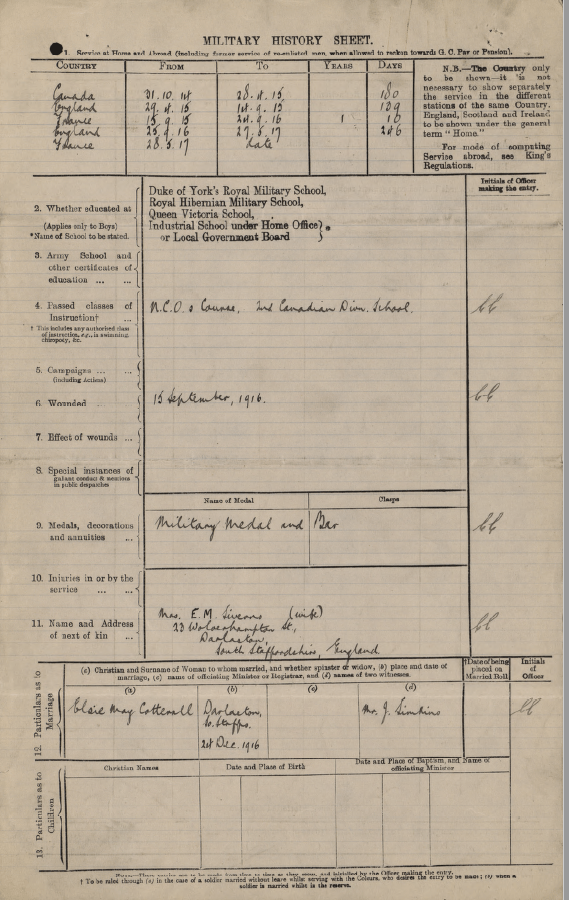 MILITARY HISTORY SHEET.
1. Service at Home and Abroad (including former service of re-enlisted men, when allowed to reckon towards G. C. Pay or Pension).
COUNTRY FROM TO YEARS DAYS
Canada 31.10.14 28.4.15 180
England 29.4.15 14.9.15 139
France 15.9.15 24.9.16 1 10
England 25.9.16 27.5.17 246
France 28.5.17 Date
N.B.—The Country only
to be shown—it is not
necessary to show separately
the service in the different
stations of the same Country.
England, Scotland and Ireland
to be shown under the general
term "Home."
For mode of computing
Service abroad, see King's
Regulations.
Initials of Officer
making the entry.
2. Whether educated at
(Applies only to Boys)
*Name of School to be stated.
Duke of York's Royal Military School,
Royal Hibernian Military School,
Queen Victoria School,
Industrial School under Home Office
or Local Government Board
3. Army School and
other certificates of
education ... ...
4. Passed classes of
Instruction†
† This includes any authorised class
of instruction, e.g., in swimming,
chiropody, &c.
N.C.O.s Course, 2nd Canadian Divn. School.
5. Campaigns ... ...
(including Actions)
6. Wounded ... ...
15 September, 1916.
7. Effect of wounds ...
8. Special instances of
gallant conduct & mentions
in public despatches
Name of Medal Clasps
9. Medals, decorations
and annuities ...
Military Medal and Bar
10. Injuries in or by the
service ... ...
11. Name and Address
of next of kin ...
Mrs. E.M. (wife)
23 Wolverhampton St.,
Darlaston,
South Staffordshire, England
12. Particulars as to
Marriage
(a) Christian and Surname of Woman to whom married, and whether spinster or widow, (b) place and date of
marriage, (c) name of officiating Minister or Registrar, and (d) names of two witnesses.
†Date of being
placed on
Married Roll
Initials
of
Officer
(a) (b) (c) (d)
Elsie May Cotterall
Darlaston,
So. Staffs.
21st Dec. 1916
Mr. J. Simkins
13. Particulars as to
Children
Christian Names
Date and Place of Birth
Date and Place of Baptism, and Name of
officiating Minister
† To be ruled through (a) in the case of a soldier married without leave whilst serving with the Colours, who desires the entry to be made; (b) when a
soldier is married whilst in the reserve.